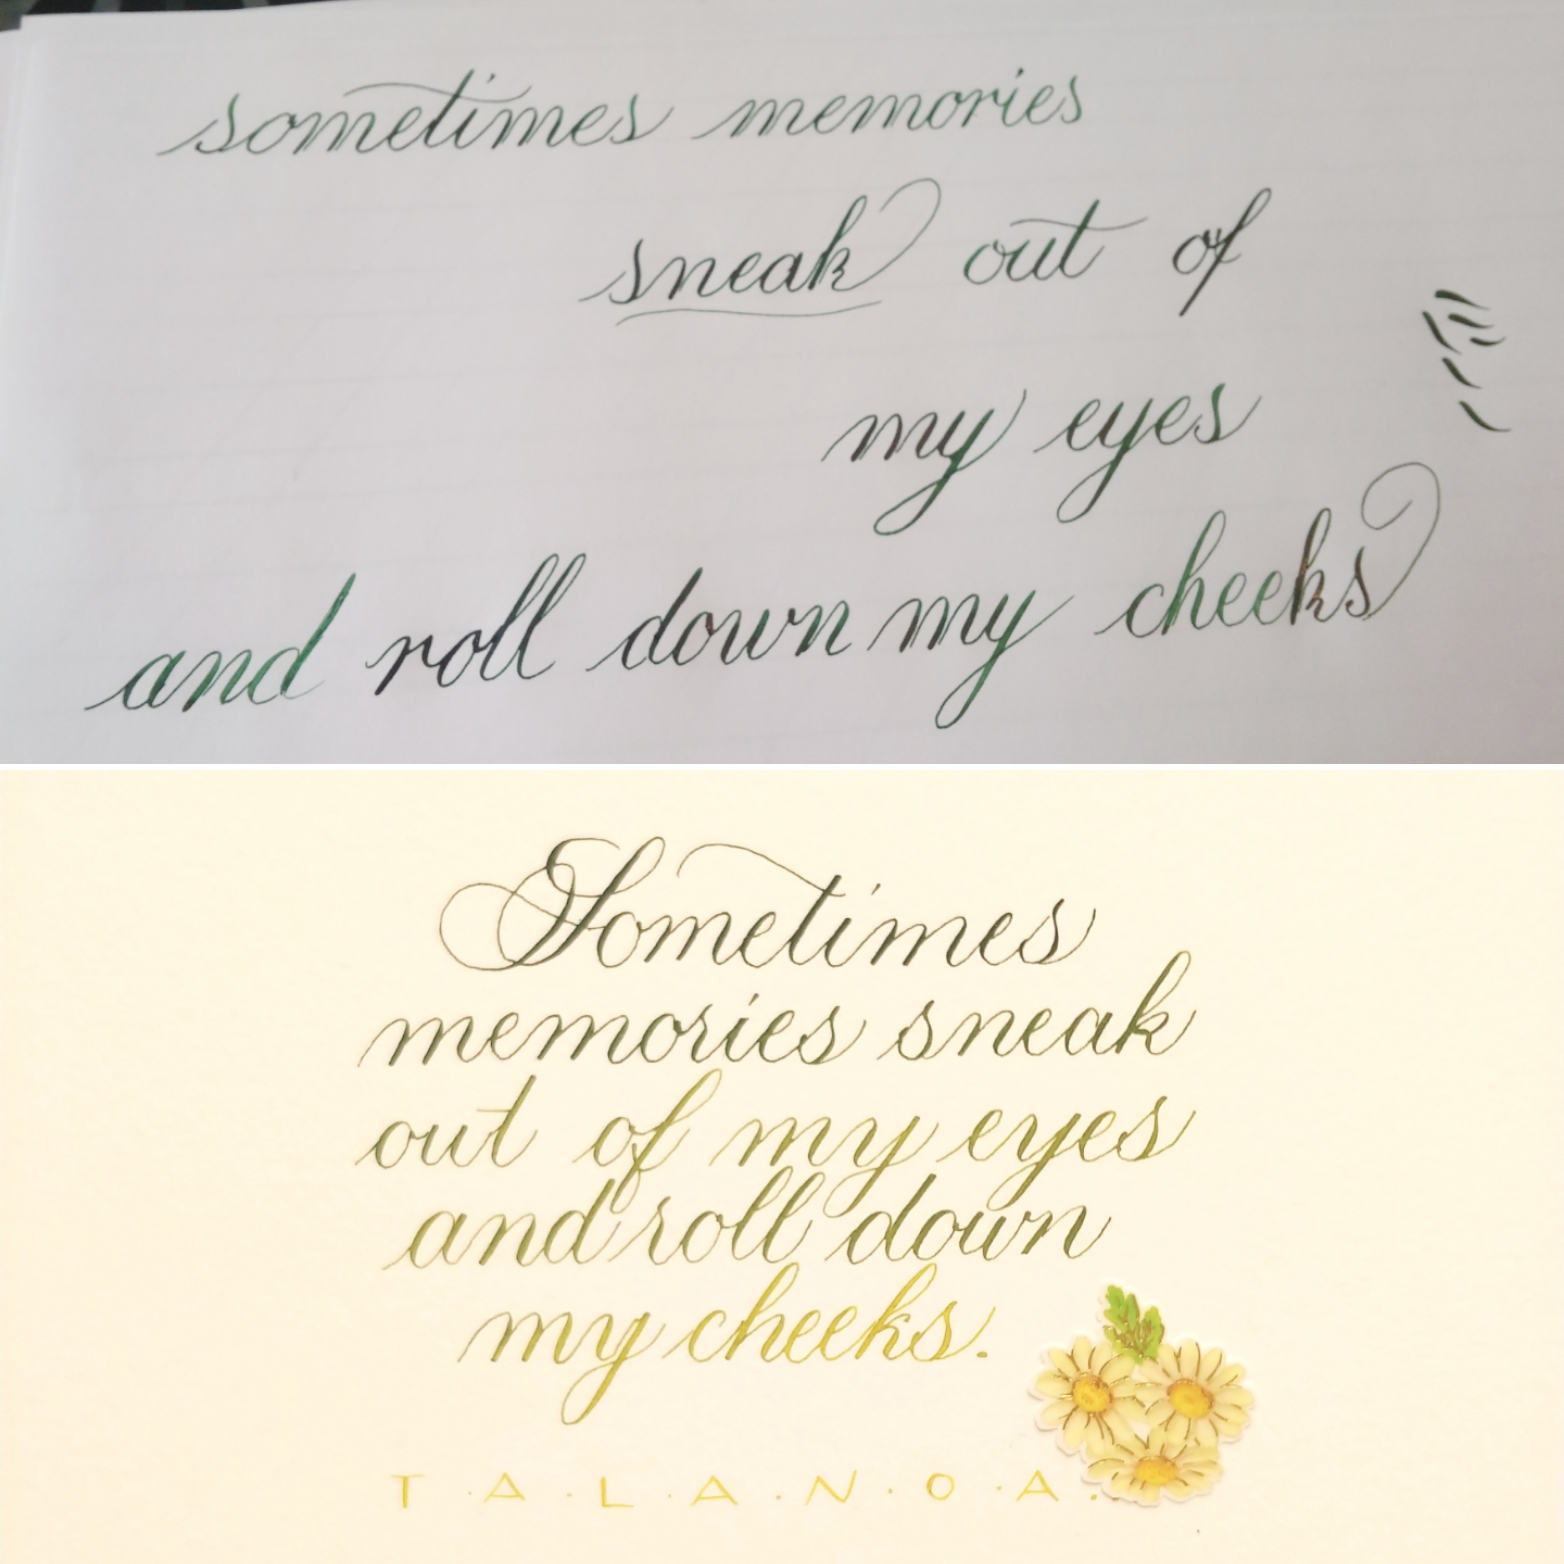 sometimes memories
sneak out of
my eyes
and roll down my cheeks
Sometimes
memories sneak
out of my eyes
and roll down
my cheeks.
T.A.L.A.N.O.A.